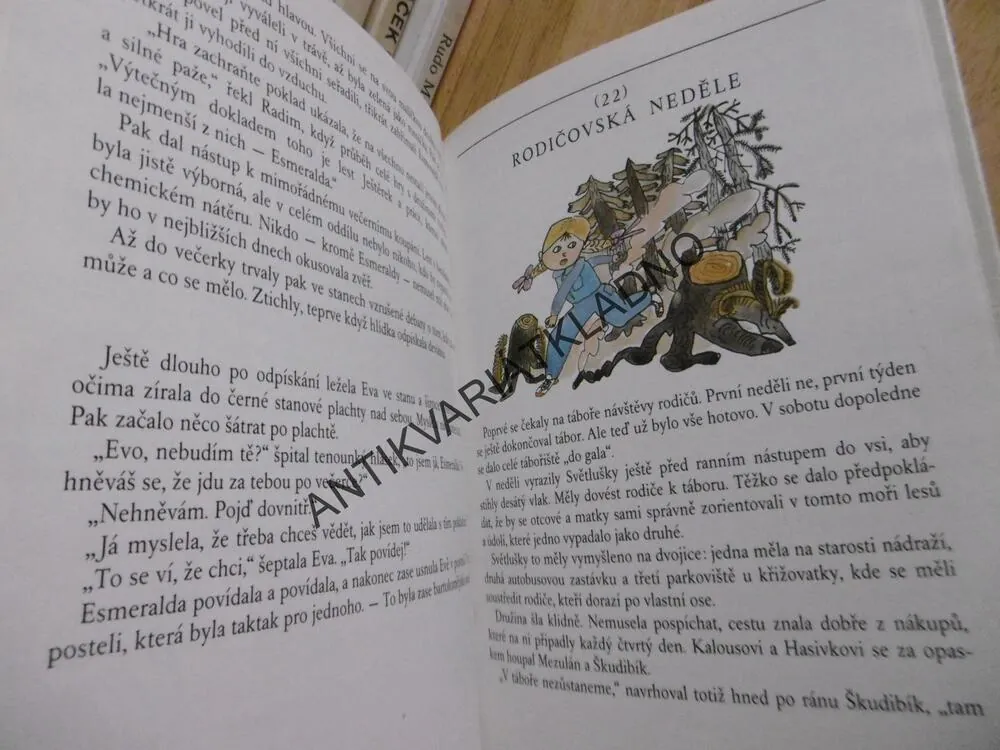 ČEK
Rudo M
hlavou. Všichni se na svou
vyváleli v trávě, až byla zelená jako
povel před ní všichni seřadili, třikrát
ji vyhodili do vzduchu.
„Hra zachraňte poklad ukázala, že na všechno nestačí
a silné paže,“ řekl Radim, když průběh celé hry s
„Výtečným dokladem toho je lest Ještěrek a práce,
la nejmenší z nich — Esmeralda.“
Pak dal nástup k mimořádnému večernímu koupání. Lest s
byla jistě výborná, ale v celém oddílu nebylo nikoho, kdo by
chemickém nátěru. Nikdo — kromě Esmeraldy — nemusel mít
by ho v nejbližších dnech okusovala zvěř.
Až do večerky trvaly pak ve stanech vzrušené debaty o tom,
může a co se mělo. Ztichly, teprve když hlídka odpískala
Ještě dlouho po odpískání ležela Eva ve stanu a
očima zírala do černé stanové plachty nad sebou.
Pak začalo něco šátrat po plachtě.
„Evo, nebudím tě?“ špital tenounký hlásek, „to jsem já, Esmeralda.
hněváš se, že jdu za tebou po večerce?“
„Nehněvám. Pojď dovnitř.“
„Já myslela, že třeba chceš vědět, jak jsem to udělala s tím
„To se ví, že chci,“ šeptala Eva. „Tak povídej!“
Esmeralda povídala a povídala, a nakonec zase usnula Evě v
posteli, která byla taktak pro jednoho. — To byla zase
(22)
RODIČOVSKÁ NEDĚLE
Poprvé se čekaly na táboře návštěvy rodičů. První neděli ne, první týden
se ještě dokončoval tábor. Ale teď už bylo vše hotovo. V sobotu dopoledne
se dalo celé tábořiště „do gala“.
V neděli vyrazily Světlušky ještě před ranním nástupem do vsi, aby
stihly desátý vlak. Měly dovést rodiče k táboru. Těžko se dalo předpoklá-
dat, že by se otcové a matky sami správně zorientovali v tomto moři lesů
a údolí, které jedno vypadalo jako druhé.
Světlušky to měly vymyšleno na dvojice: jedna měla na starosti nádraží,
druhá autobusovou zastávku a třetí parkoviště u křižovatky, kde se měli
soustředit rodiče, kteří dorazí po vlastní ose.
Družina šla klidně. Nemusela pospíchat, cestu znala dobře z nákupů,
které na ni připadly každý čtvrtý den. Kalousovi a Hasivkovi se za opas-
kem houpal Mezulán a Škudibík.
„V táboře nezůstaneme,“ navrhoval totiž hned po ránu Škudibík, „tam
ANTIKVARIATKLADNO